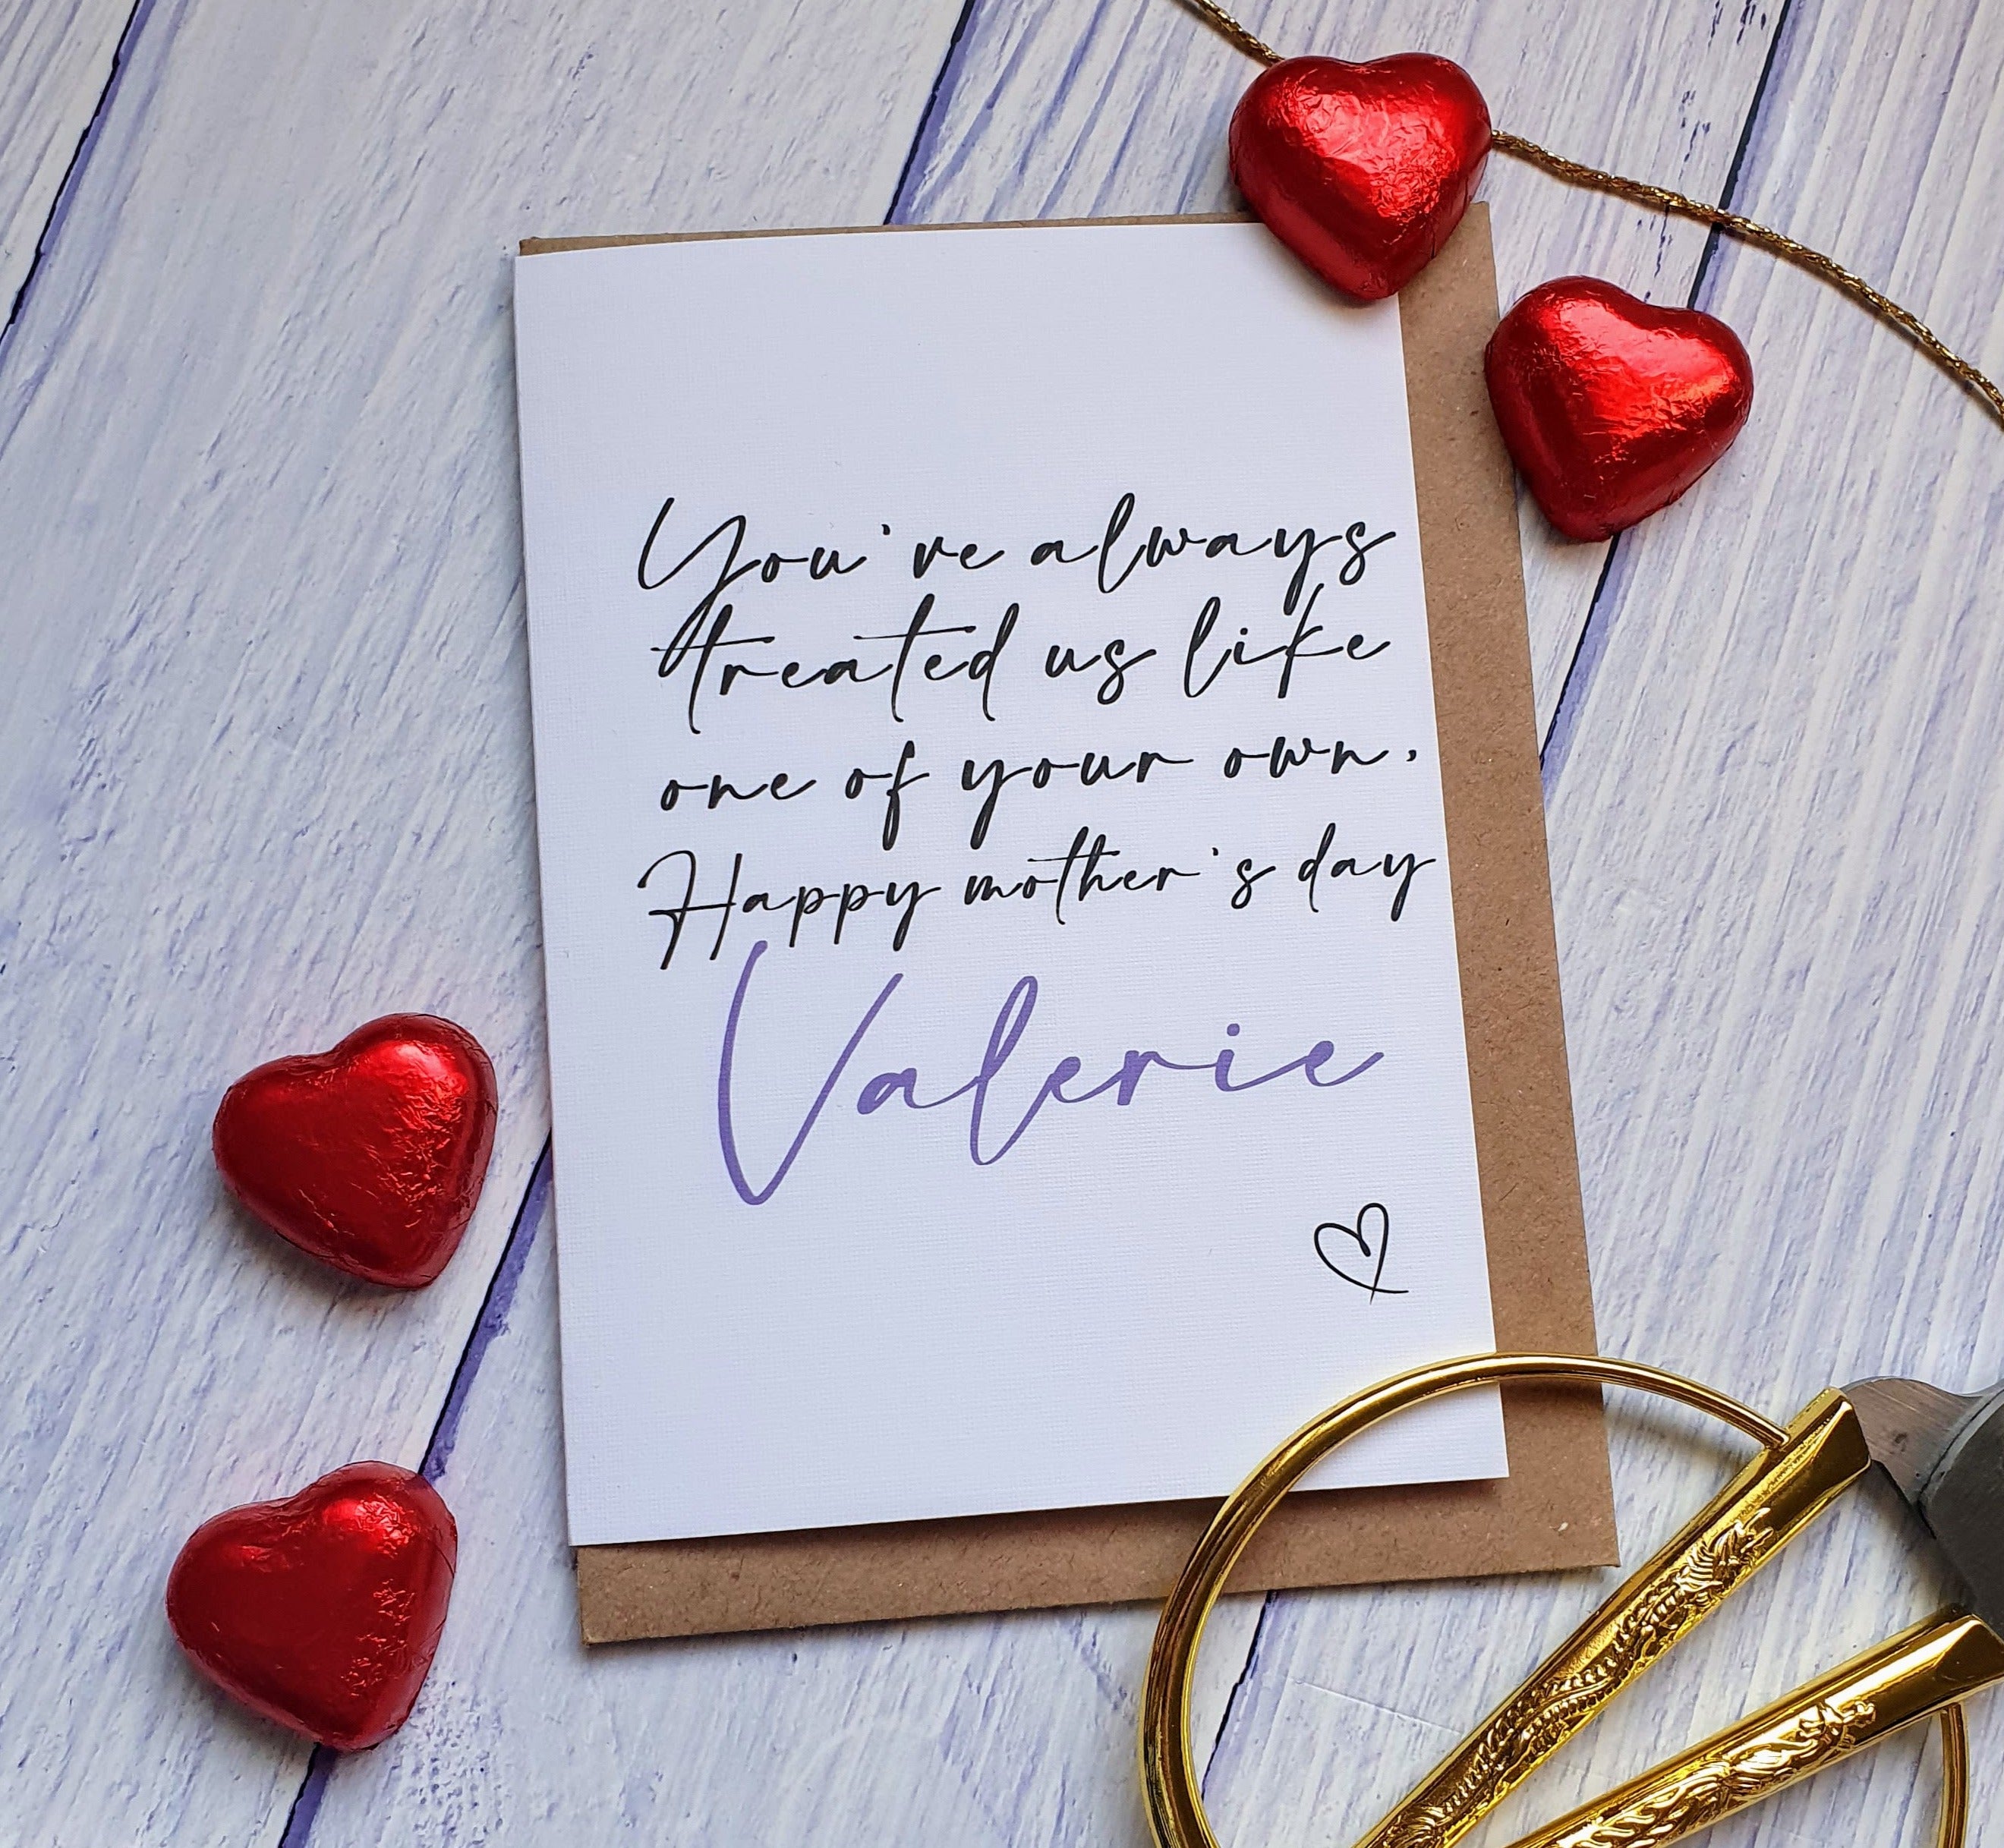 You've always
treated us like
one of your own.
Happy mother's day
Valerie